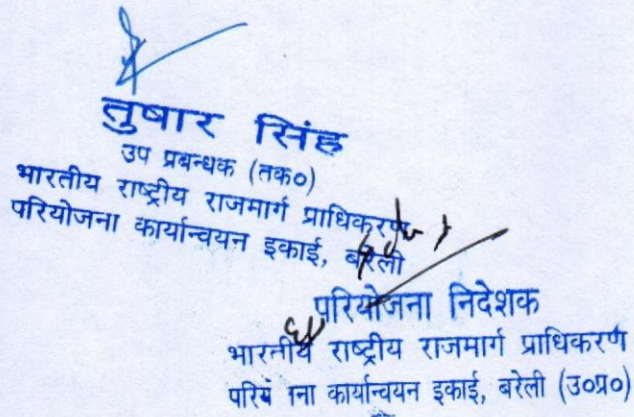 तुषार सिंह
उप प्रबन्धक (तक०)
भारतीय राष्ट्रीय राजमार्ग प्राधिकरण
परियोजना कार्यान्वयन इकाई, बरेली
परियोजना निदेशक
भारतीय राष्ट्रीय राजमार्ग प्राधिकरण
परियं ना कार्यान्वयन इकाई, बरेली (उ०प्र०)